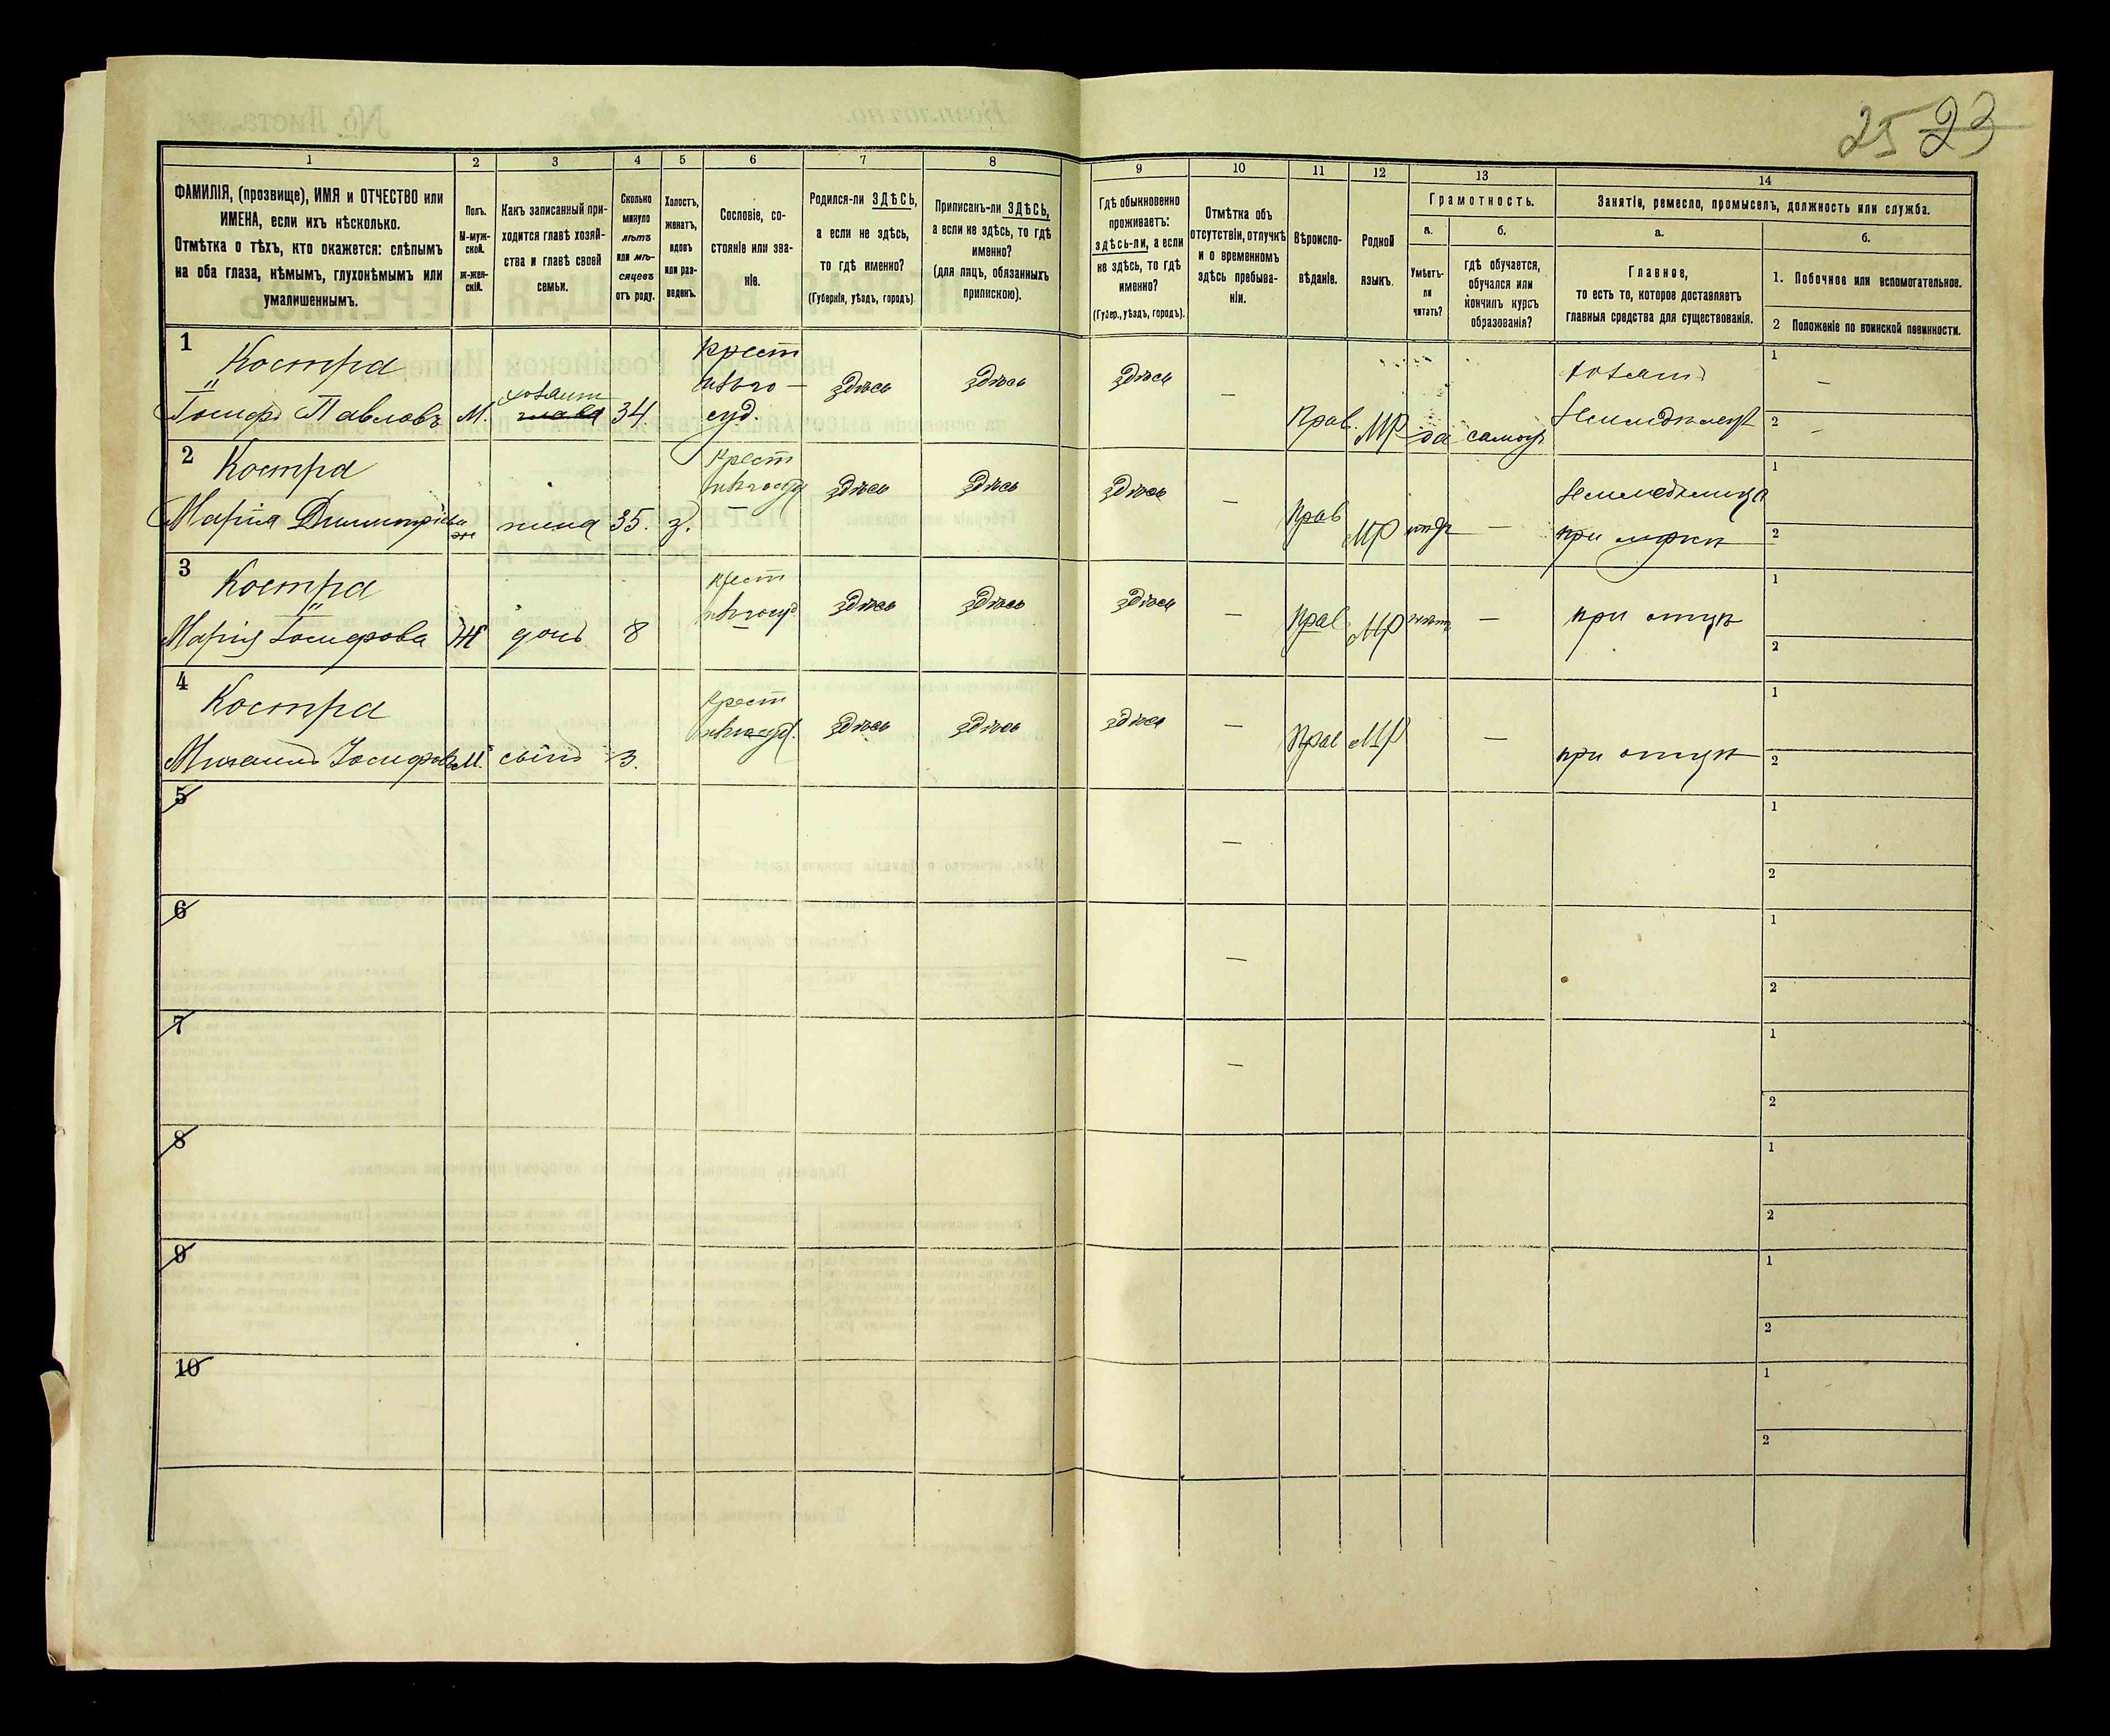 25 23
1
2
3
4
5
6
7
8
9
10
11
12
13
14
ФАМИЛІЯ, (прозвище), ИМЯ и ОТЧЕСТВО или
ИМЕНА, если ихъ нѣсколько.
Отмѣтка о тѣхъ, кто окажется: слѣпымъ
на оба глаза, нѣмымъ, глухонѣмымъ или
умалишеннымъ.
Полъ.
М-муж-
ской.
ж-жен-
скій.
Какъ записанный при-
ходится главѣ хозяй-
ства и главѣ своей
семьи.
Сколько
минуло
лѣтъ
или мѣ-
сяцевъ
отъ роду.
Холостъ,
женатъ,
вдовъ
или раз-
веденъ.
Сословіе, со-
стояніе или зва-
ніе.
Родился-ли ЗДѢСЬ,
а если не здѣсь,
то гдѣ именно?
(Губернія, уѣздъ, городъ).
Приписанъ-ли ЗДѢСЬ,
а если не здѣсь, то гдѣ
именно?
(для лицъ, обязанныхъ
припискою).
Гдѣ обыкновенно
проживаетъ:
здѣсь-ли, а если
не здѣсь, то гдѣ
именно?
(Губер., уѣздъ, городъ).
Отмѣтка объ
отсутствіи, отлучкѣ
и о временномъ
здѣсь пребыва-
ніи.
Вѣроиспо-
вѣданіе.
Родной
языкъ.
Грамотность.
а.
Умѣетъ-
ли
читать?
б.
гдѣ обучается,
обучался или
кончилъ курсъ
образованія?
Занятіе, ремесло, промыселъ, должность или служба.
а.
Главное,
то есть то, которое доставляетъ
главныя средства для существованія.
б.
1. Побочное или вспомогательное.
2 Положеніе по воинской повинности.
1
Костра
Іосифъ Павловъ
М.
34
Крест
суд.
здѣсь
здѣсь
здѣсь
—
Прав.
МР
да
1
—
2
—
2
Костра
Марія Димитріева
ж
жена
35.
з.
Крест
здѣсь
здѣсь
здѣсь
—
Прав
МР
—
при
1
2
3
Костра
Марія Іосифова
Ж
дочь
8
Крест
здѣсь
здѣсь
здѣсь
—
Прав
МР
нѣтъ
—
при отцѣ
1
2
4
Костра
Михаилъ Іосифовъ
М.
сынъ
3.
Крест
здѣсь
здѣсь
здѣсь
—
Прав
МР
—
при отцѣ
1
2
5
—
1
2
6
—
1
2
7
—
1
2
8
1
2
9
1
2
10
1
2